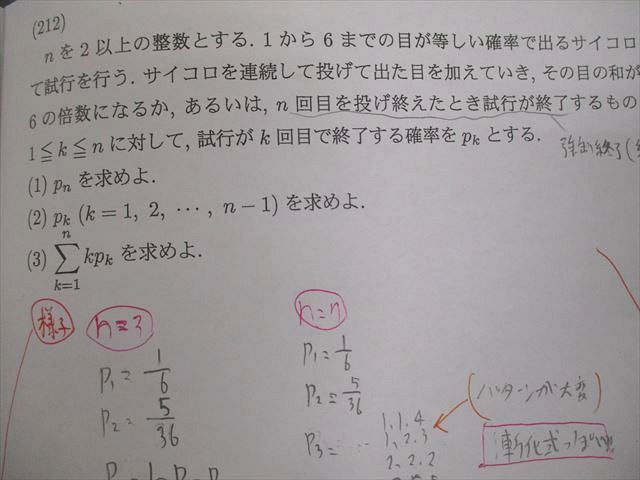 (212)
nを2以上の整数とする. 1から6までの目が等しい確率で出るサイコロ
て試行を行う. サイコロを連続して投げて出た目を加えていき, その目の和が
6の倍数になるか, あるいは, n回目を投げ終えたとき試行が終了するもの
1≦k≦nに対して, 試行がk回目で終了する確率をp_kとする.
強制終了(
(1) p_nを求めよ.
(2) p_k (k=1, 2, ⋯, n−1) を求めよ.
(3) \sum_{k=1}^{n} kp_k を求めよ.
様子
n=3
P_1=1/6
P_2=5/36
n=n
P_1=1/6
P_2=5/36
P_3= ⋯
1, 1, 4
1, 2, 3
2, 2, 2
(パターンが大変)
漸化式っぽい